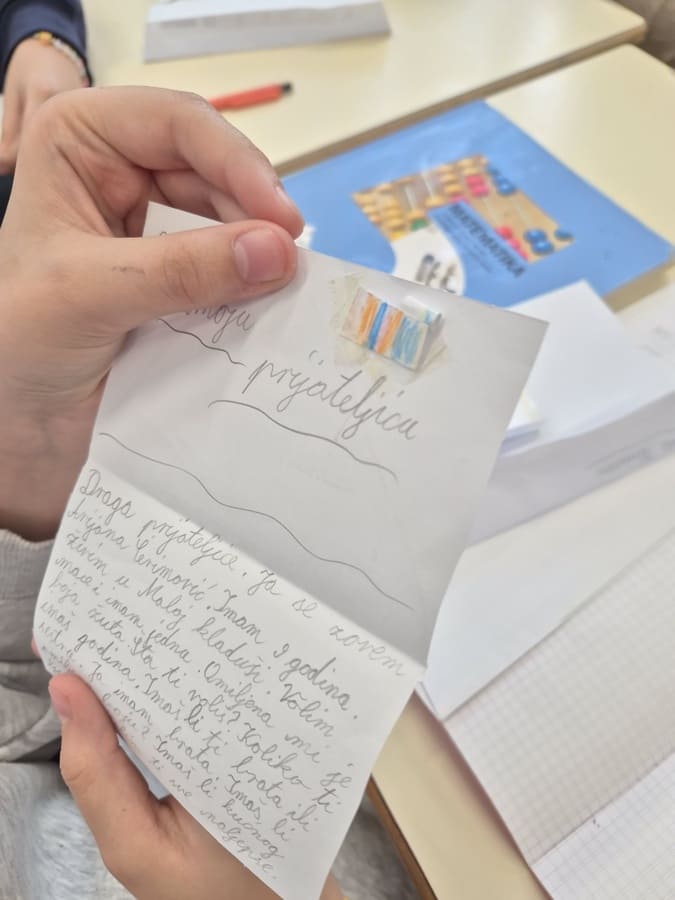 MATEMATIKA
moju
prijateljicu
Draga prijateljice. Ja se zovem
Arijana Ćerimović. Imam 9 godina.
Živim u Maloj kladuši. Volim
mace i imam jednu. Omiljena mi je
boja žuta. Šta ti voliš? Koliko ti
imaš godina. Imaš li ti brata ili
Ja imam brata. Imaš li
Imaš li kućnog
ti sve najljepše.